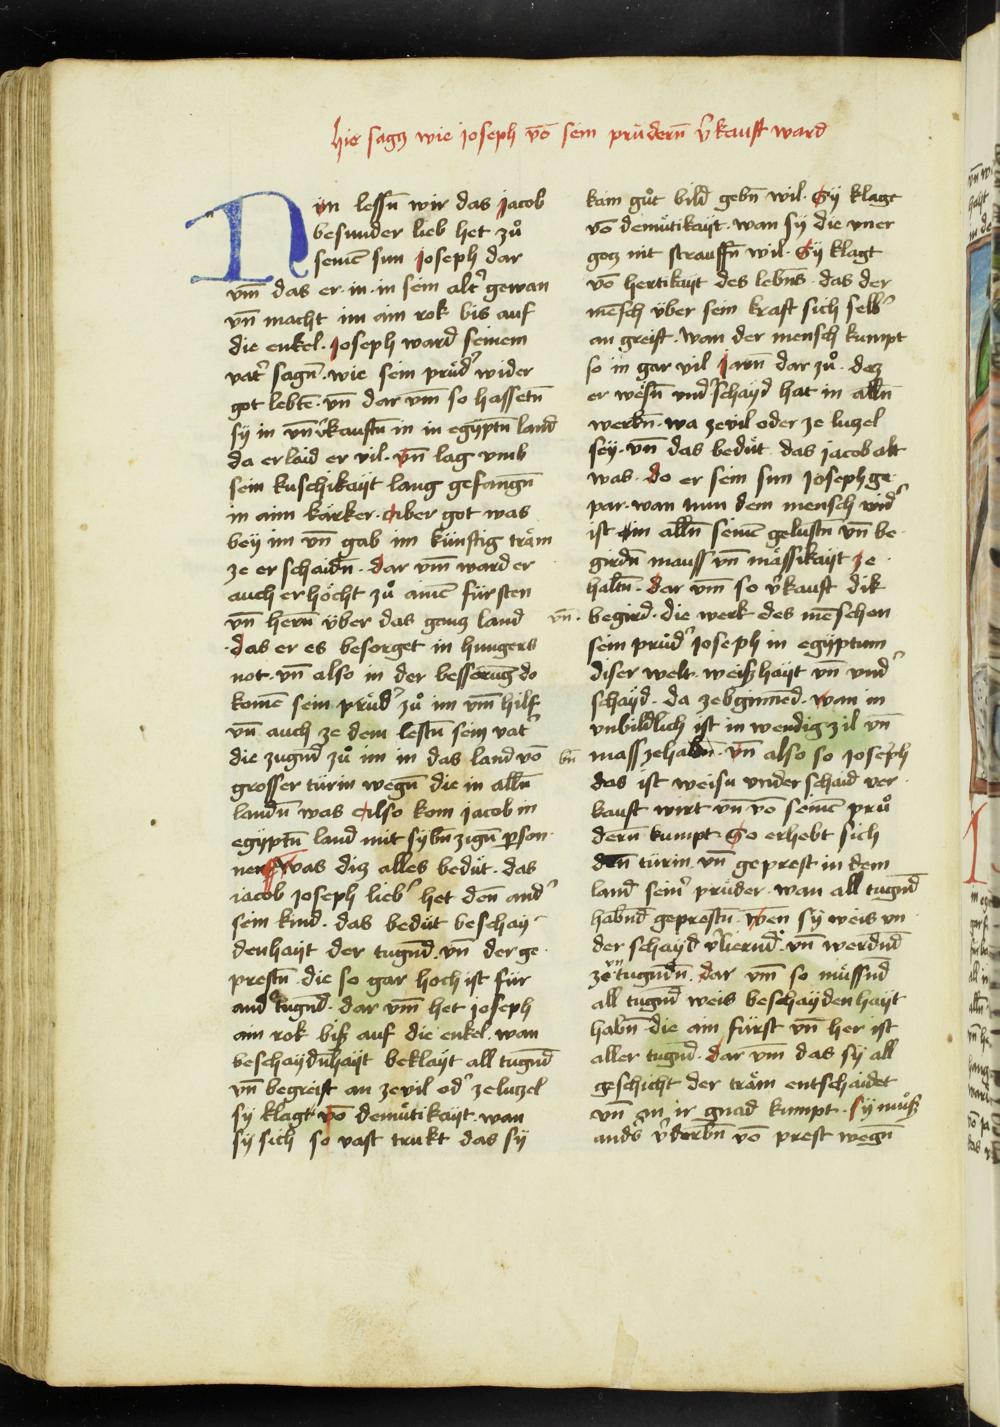 hie sagt wie joseph vō sein prüdern v̾kauft ward
Nun lessn̄ wir das jacob
besunder lieb het zů
seinē sun joseph dar
vm̄ das er in in sein alt̾ gewan
vn̄ macht im ain rok bis auf
die enkel. joseph ward seinem
vat̾ sagn̄. wie sein prüd̾ wider
got lebtē. vn̄ dar vm̄ so hassetn̄
sy in vn̄ v̾kauftn̄ in in egyptn̄ land
da er laid er vil. vn̄ lag vmb
sein kuschikayt lang gefangn̄
in aim karker. aber got was
bey im vn̄ gab im künftig träm
ze er schaidn̄. dar vm̄ ward er
auch er höcht zů ainē fürsten
vn̄ hern̄ über das gancz land
das er es besorget in hungers
not. vn̄ also in der besserūg do
komē sein prüd̾ zů im vm̄ hilf
vn̄ auch ze dem lestn̄ sein vat̾
die zugnd̄ zů im in das land vō
grosser türin wegn̄ die in alln̄
landn̄ was also kom jacob in
egyptn̄ land mit sybn̄zign̄ p̱son
nen was diz alles bedüt. das
jacob joseph lieb̾ het den̄ and̾
sein kind. das bedüt beschay
denhayt der tugnd̄. vn̄ der ge
prestn̄. die so gar hoch ist für
and̾ tugnd̄. dar vm̄ het joseph
ain rok biß auf die enkel. wan
beschaydn̄hayt beklayt all tugnd̄
vn̄ begreift an ze vil od̾ ze luczel
sy klagt vō demütikayt. wan
sy sich so vast trukt das sy
kain gůt bild gebn̄ wil. Sy klagt
vō demütikayt. wan sy die vner
gocz nit strauffn̄ wil. Sy klagt
vō hertikayt des lebn̄s. das der
mēsch über sein kraft sich selb̾
an greift. wan der mensch kumpt
so in gar vil jarn̄ dar zů. daz
er wesn̄ vnd̾schayd hat in alln̄
werbn̄. wa ze vil oder ze luczel
sey. vn̄ das bedüt. das jacob alt
was. do er sein sun joseph ge
par. wan nun dem mensch wid̾
ist in alln̄ seinē gelustn̄ vn̄ be
girdn̄ mauss vn̄ mässikayt ze
haltn̄. dar vm̄ so v̾kauft dik
vn̄. begird. die werk des mēschen
sein prüd̾ joseph in egyptum
diser welt. weißhayt vn̄ vnd̾
schayd. da ze beginned. wan in
vnbildlich ist in wendig zil vn̄
bn̄ mass ze habn̄. vn̄ also so joseph
das ist weisu vnderschaid ver
kauft wirt vn̄ vō seinē prů
dern̄ kumpt. So erhebt sich
den̄ türin vn̄ geprest in dem
land sein̾ prüder. wan all tugnd̄
habnd̄ geprestn̄. wen sy weis vn
der schayd v̾liernd̄. vn̄ werdnd̄
ze vn tugndn̄. dar vm̄ so müssnd̄
all tugnd̄ weis beschaydenhayt
habn̄. die ain fürst vn̄ her ist
aller tugnd̄. dar vm̄ das sy all
geschicht der träm entschaidet
vn̄ zu ir gnad kumpt. sy můß
anders v̾derbn̄ vō prest wegn̄